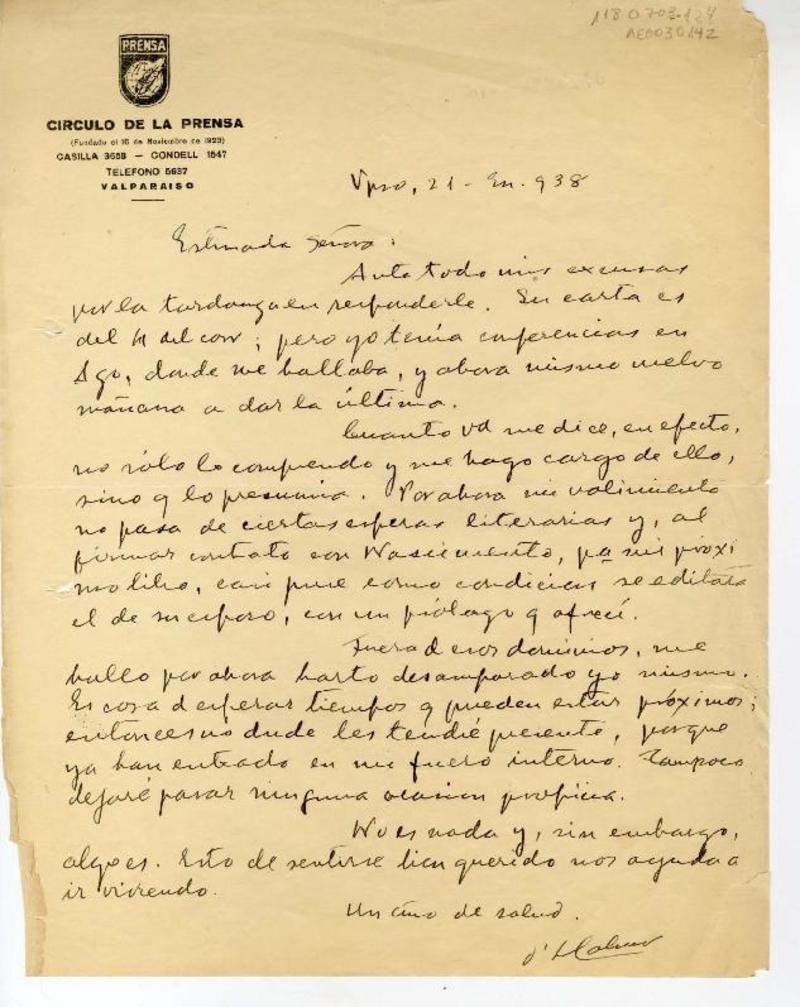 1180703-124
AE0030142
PRENSA
CIRCULO DE LA PRENSA
(Fundado el 16 de Noviembre de 1923)
CASILLA 3658 — CONDELL 1547
TELEFONO 5637
VALPARAISO
Vpso, 21 - En. 938
Estimada Señora:
Ante todo mis excusas
por la tardanza en responderle. Su carta es
del 11 del corr; pero yo tenía conferencias en
Sgo, donde me hallaba, y ahora mismo vuelvo
mañana a dar la última.
Cuanto Vd me dice, en efecto,
no sólo lo comprendo y me hago cargo de ello,
sino q lo presumía. Por ahora mi valimiento
no pasa de ciertas esferas literarias y, al
firmar contrato con Nascimento, pa mi próxi
mo libro, casi puse como condición se editara
el de su esposo, con un prólogo q ofrecí.
Fuera d esos dominios, me
hallo por ahora harto desamparado yo mismo.
Es cosa d esperar tiempos q pueden estar próximos;
entonces no dude les tendré presente, porque
ya han entrado en mi fuero interno. Tampoco
dejaré pasar ninguna ocasion propicia.
No es nada y, sin embargo,
algo es. Esto de sentirse bien querido nos ayuda a
ir viviendo.
Un cino de salud.
d'Halmar